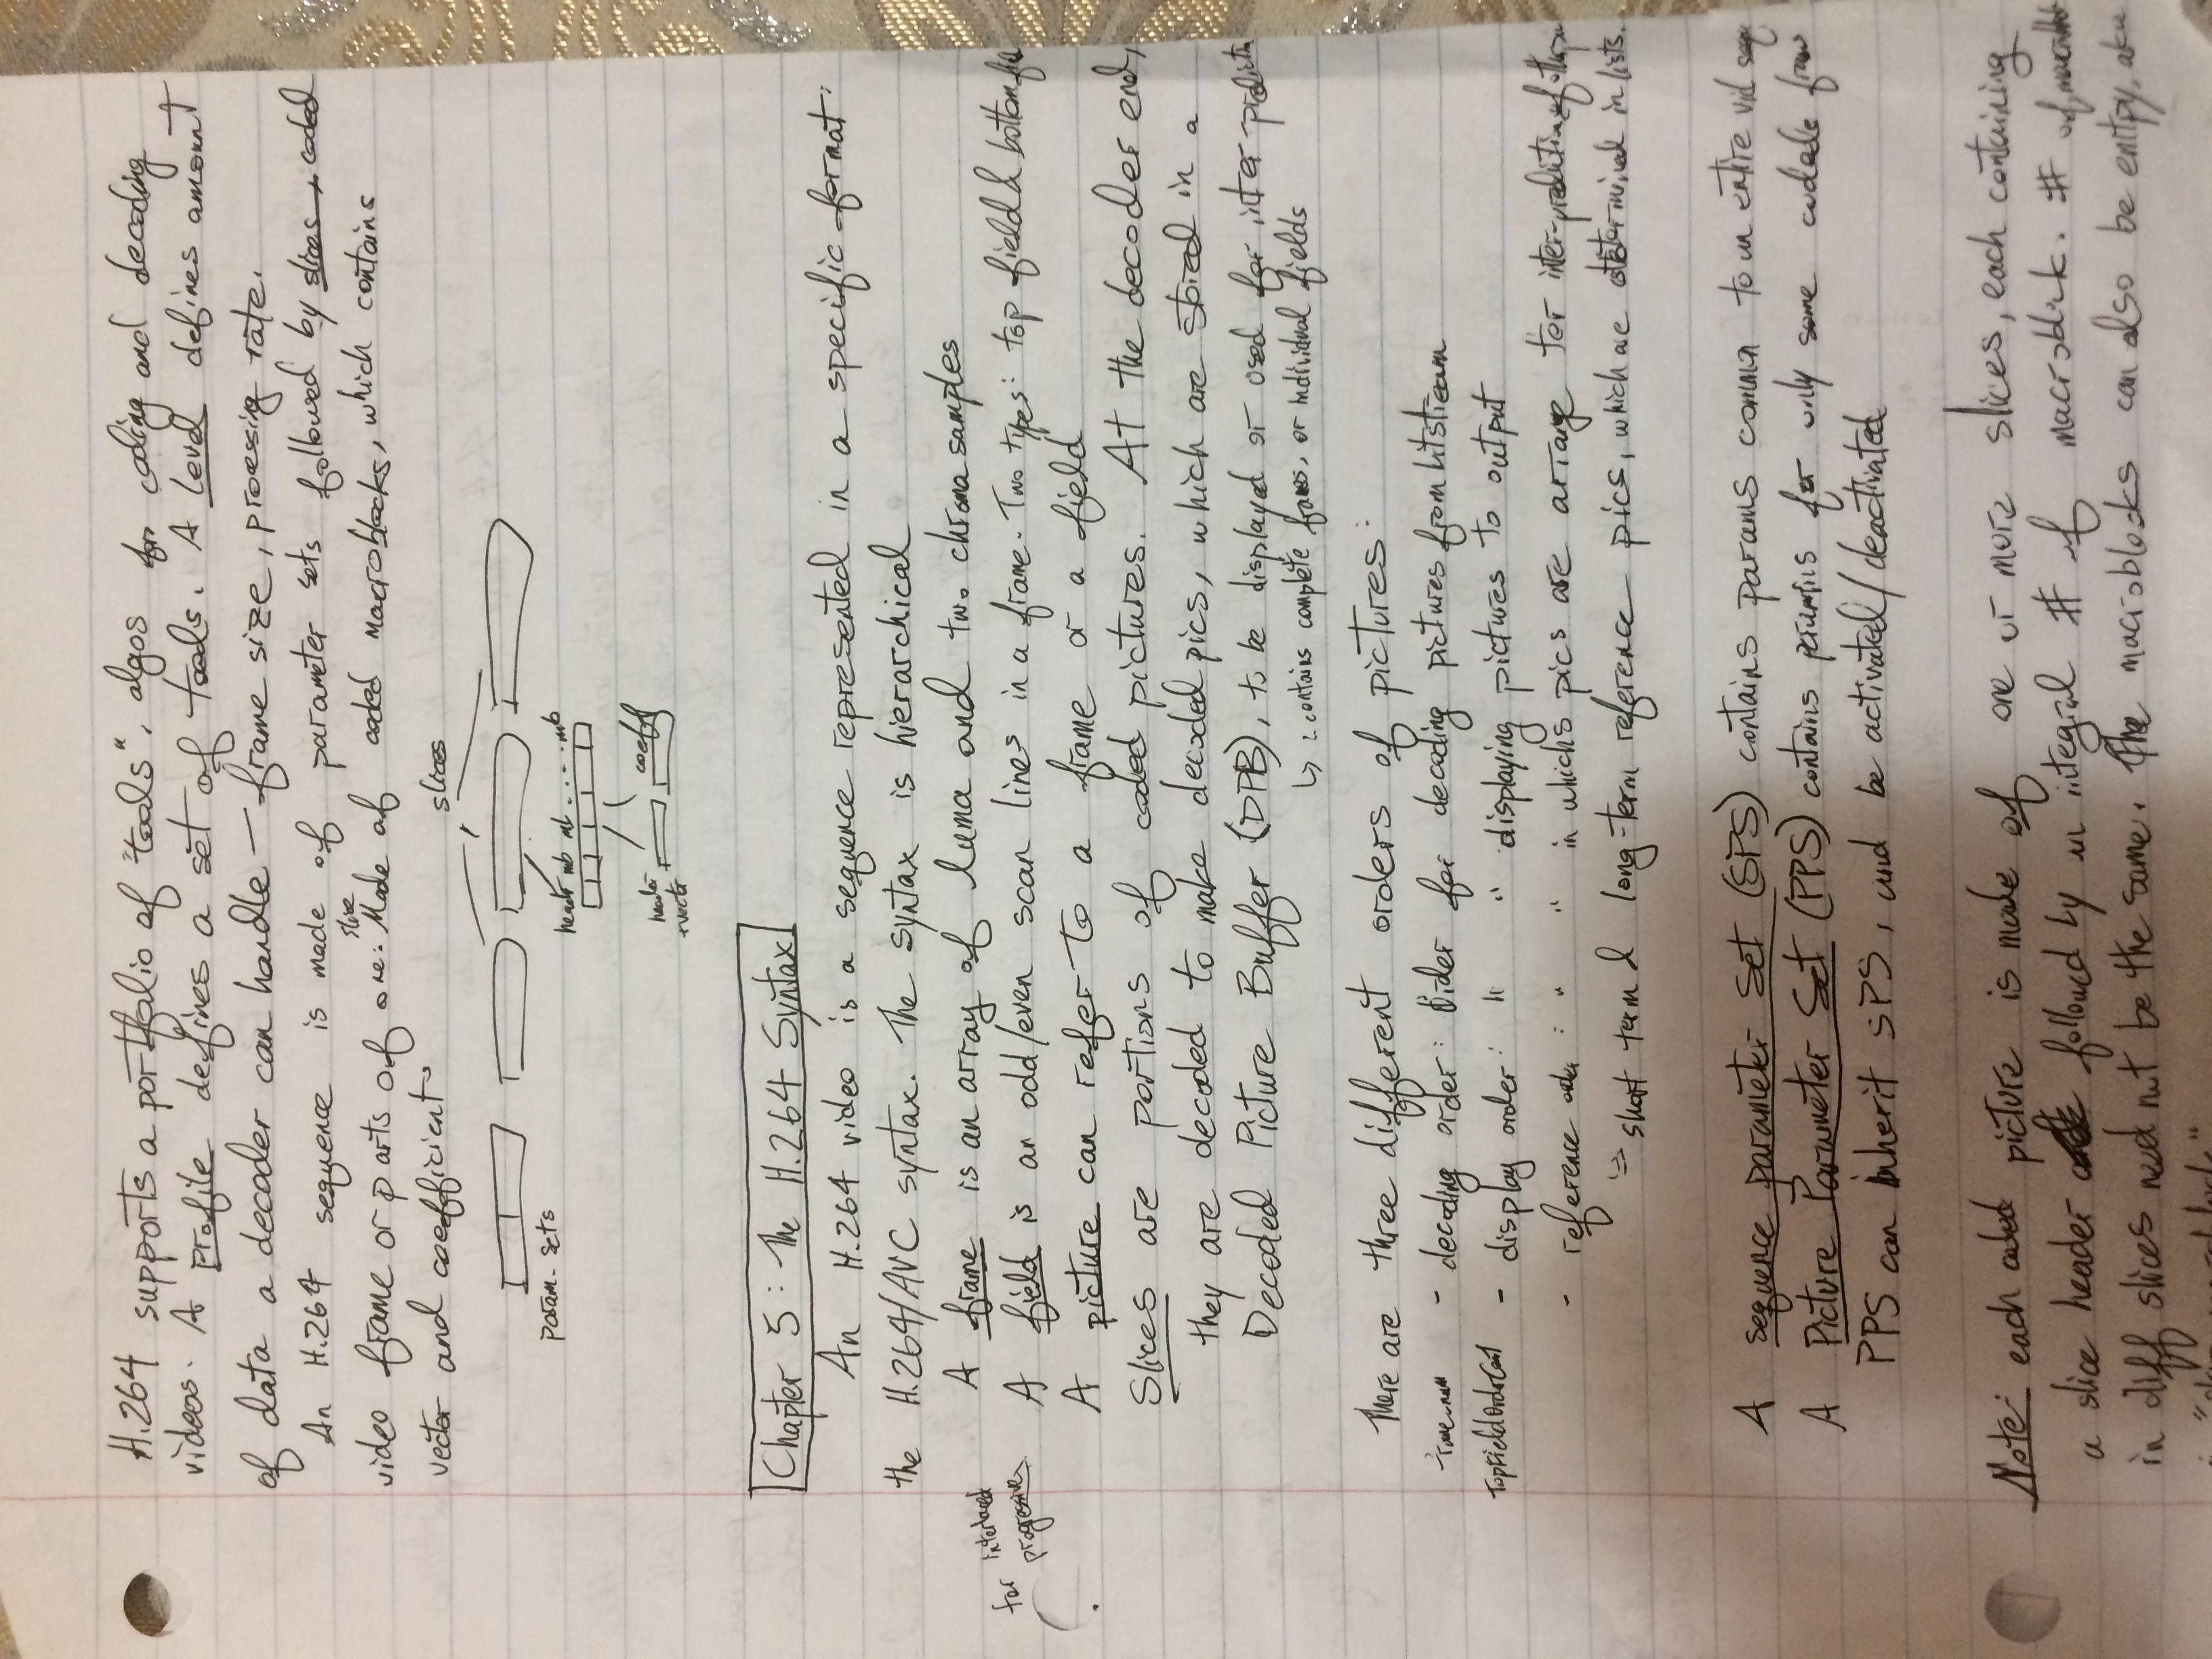 H.264 supports a portfolio of "tools", algos for coding and decoding
videos. A profile defines a set of tools. A Level defines amount
of data a decoder can handle - frame size, processing rate.
An H.264 sequence is made of parameter sets followed by slices, coded
slice
video frame or parts of one. Made of coded macroblocks, which contains
vector and coefficient.
slices
param. sets
header mb mb .... mb
header coeff
+vector
Chapter 5: The H.264 Syntax
An H.264 video is a sequence represented in a specific format:
the H.264/AVC syntax. The syntax is hierarchical
A frame is an array of luma and two chroma samples
for interlaced
progressive
A field is an odd/even scan lines in a frame. Two types: top field & bottom
A picture can refer to a frame or a field
Slices are portions of coded pictures. At the decoder end,
they are decoded to make decoded pics, which are stored in a
Decoded Picture Buffer (DPB), to be displayed or used for inter-prediction
↳ : contains complete frames, or individual fields
There are three different orders of pictures:
frame_num - decoding order: Order for decoding pictures from bitstream
TopFieldOrderCnt - display order: " " displaying pictures to output
- reference order: " " in whichs pics are arrange for inter-prediction of other
↳ short term & long-term reference pics, which are determined in lists.
A sequence parameter set (SPS) contains params common to an entire vid
A Picture Parameter Set (PPS) contains params for only some
PPS can inherit SPS, and be activated/deactivated
Note: each coded picture is made of one or more slices, each containing
a slice header followed by an integral # of macroblock. # of
in diff slices need not be the same. The macroblocks can also be emtpy, aka